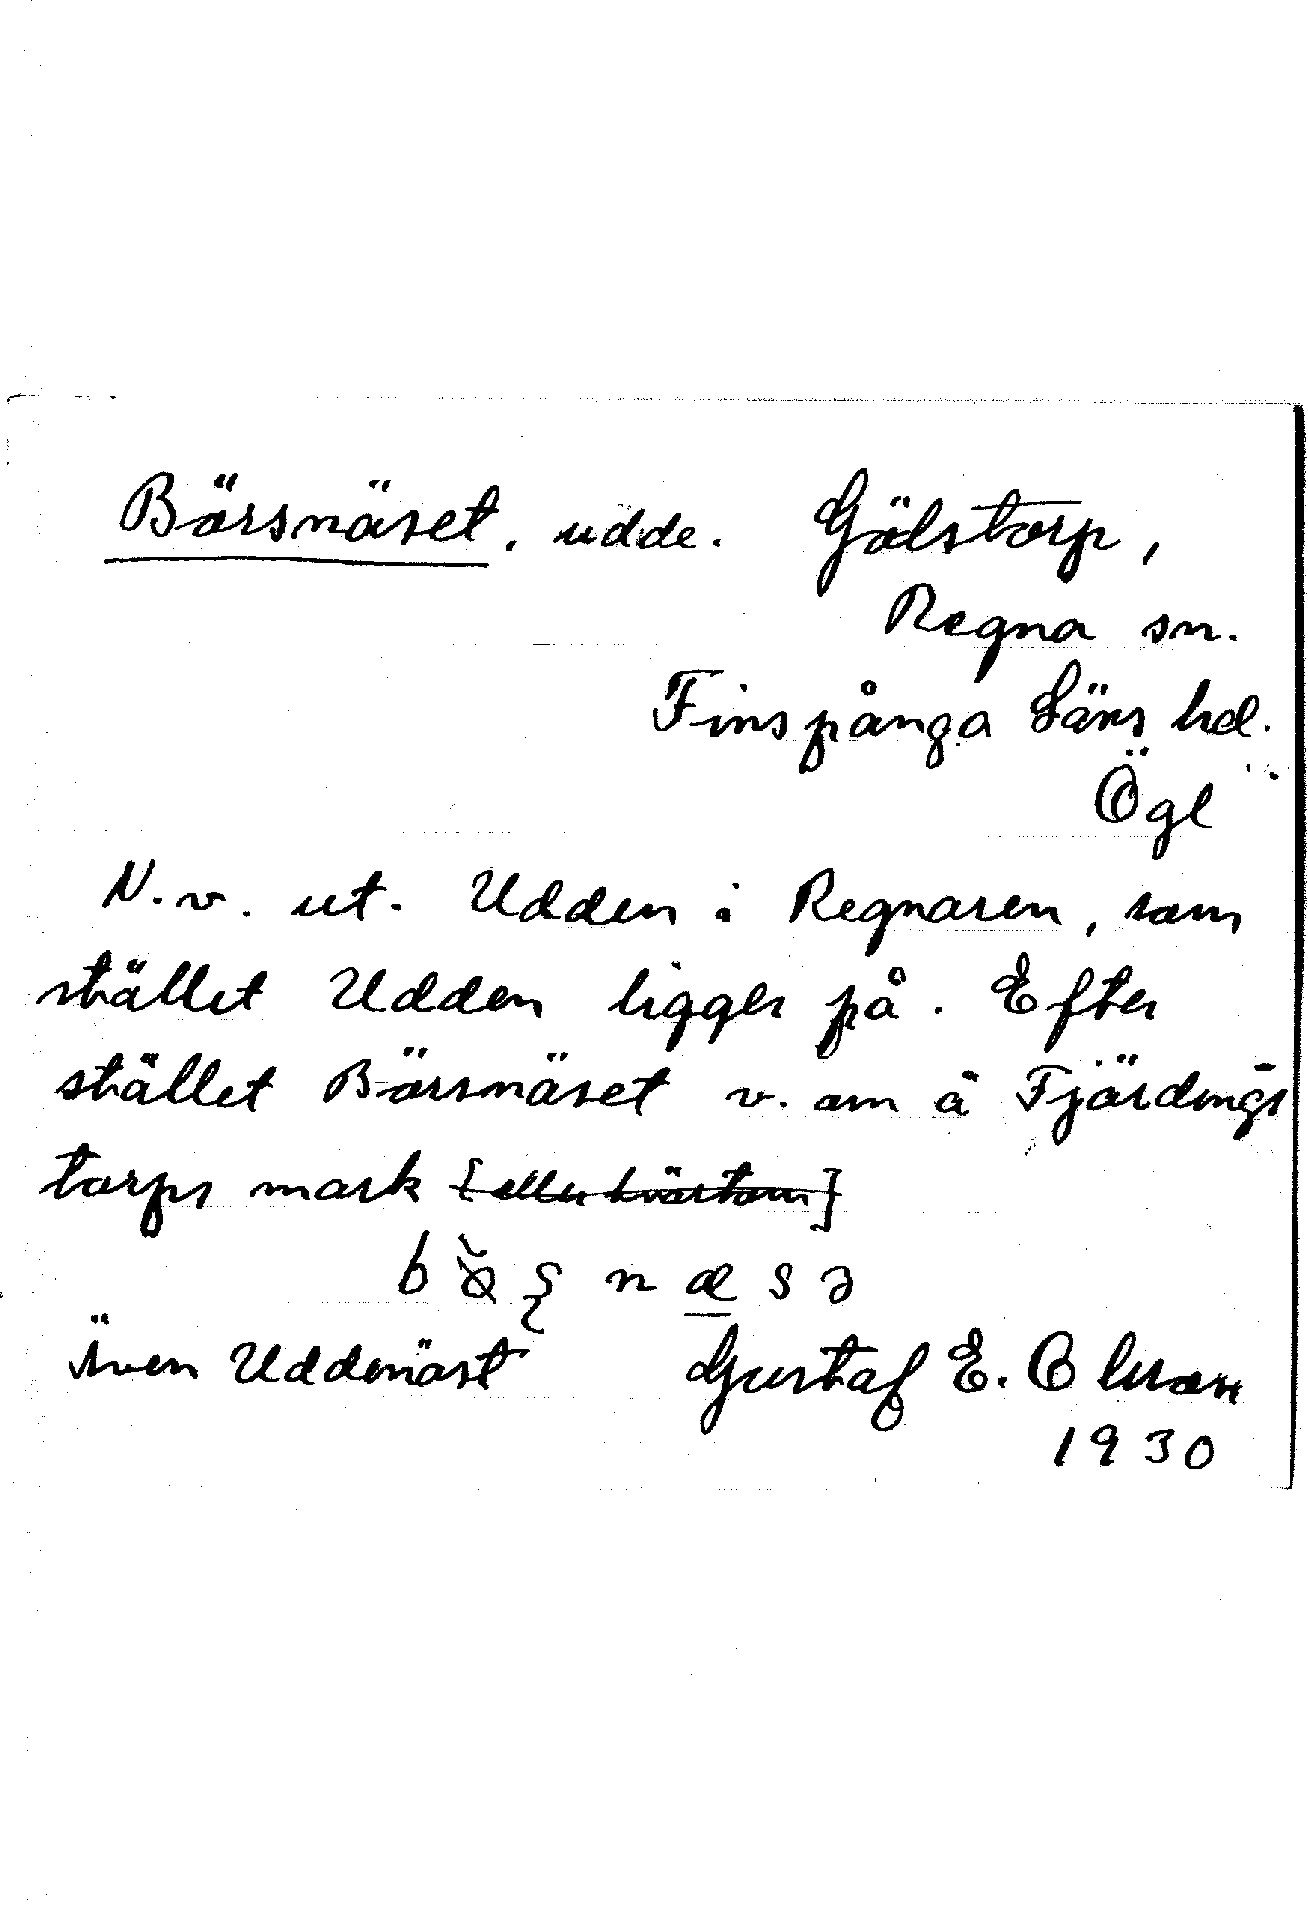 Börsnäset. udde. Gölstorp,
Regna sn.
Finspånga Läns hd.
Ögl
N.v. ut. Udden i Regnaren, som
stället Udden ligger på. Efter
stället Börsnäset v. om å Fjärdings
torps mark [eller tvärtom]
n æ s ə
Även Uddenäst Gustaf E. Olsson
1930